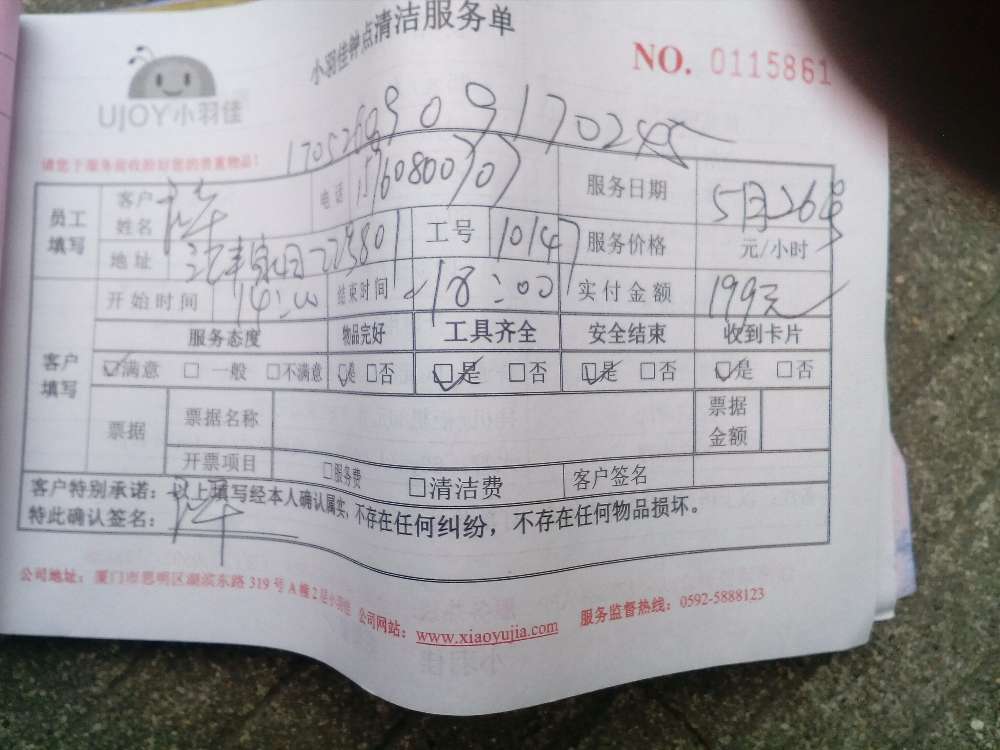 小羽佳钟点清洁服务单
NO. 0115861
UJOY小羽佳
请您于服务前收拾好您的贵重物品！
员工填写 客户姓名 电话 服务日期 5月26号
地址 工号 10147 服务价格 元/小时
开始时间 14:00 结束时间 18:00 实付金额 199元
客户填写 服务态度 物品完好 工具齐全 安全结束 收到卡片
☑满意 □一般 □不满意 ☑是 □否 ☑是 □否 ☑是 □否 ☑是 □否
票据 票据名称 票据金额
开票项目 □服务费 □清洁费 客户签名
客户特别承诺：以上填写经本人确认属实，不存在任何纠纷，不存在任何物品损坏。
特此确认签名：
公司地址：厦门市思明区湖滨东路319号A幢2层小羽佳 公司网站：www.xiaoyujia.com 服务监督热线：0592-5888123